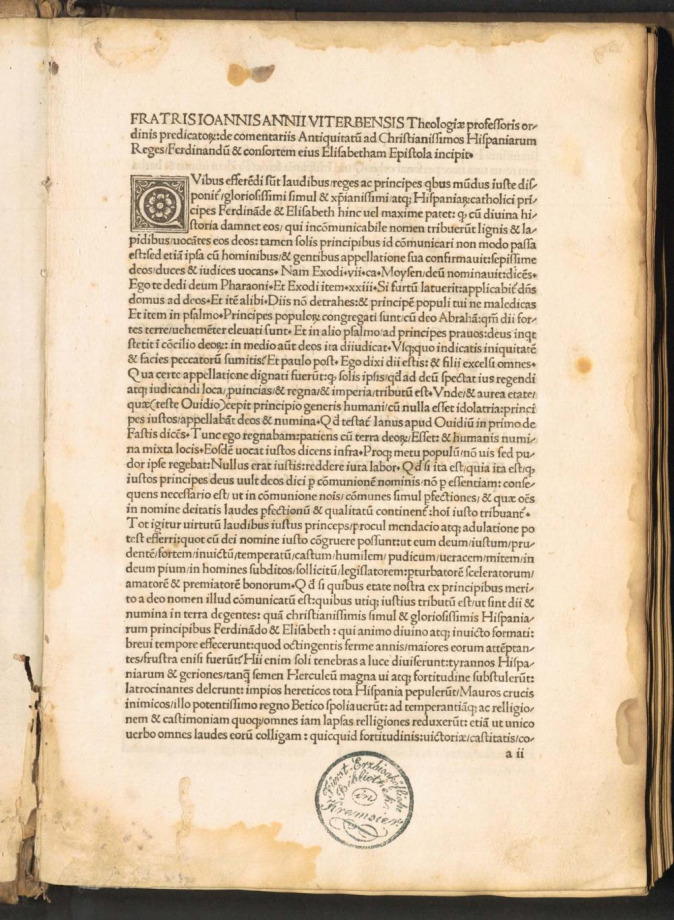 FRATRIS IOANNIS ANNII VITERBENSIS Theologiæ professoris or-
dinis predicatoꝝ: de comentariis Antiquitatū ad Christianissimos Hispaniarum
Reges/Ferdinandū & consortem eius Elisabetham Epistola incipit.
QVibus efferēdi sūt laudibus/reges ac principes qbus mūdus iuste dis-
ponit᷑/gloriosissimi simul & xp̄ianissimi/atqꝫ Hispaniaꝝ catholici prī-
cipes Ferdināde & Elisabeth hinc uel maxime patet: ꝙ cū diuina hi-
storia damnet eos/ qui incōmunicabile nomen tribuerūt lignis & la-
pidibus/uocātes eos deos: tamen solis principibus id cōmunicari non modo passa
est: sed etiā ipsa cū hominibus/& gentibus appellatione sua confirmauit: sepissime
deos/duces & iudices uocans. Nam Exodi.vii.ca. Moysen/deū nominauit: dicēs.
Ego te dedi deum Pharaoni. Et Exodi item.xxiii. Si furtū latuerit: applicabit᷑ dn̄s
domus ad deos. Et itē alibi. Diis nō detrahes: & principē populi tui ne maledicas
Et item in psalmo. Principes populoꝝ congregati sunt: cū deo Abrahā: qm̄ dii for-
tes terre/uehemēter eleuati sunt. Et in alio psalmo/ad principes prauos: deus inqt
stetit ī cōcilio deoꝝ: in medio aūt deos ita diiudicat. Vsqꝫquo indicatis iniquitatē
& facies peccatorū sumitis? Et paulo post. Ego dixi dii estis: & filii excelsi omnes.
Qua certe appellatione dignati fuerūt: ꝙ solis ipsis/qd ad deū spectat ius regendi
atqꝫ iudicandi loca/ꝓuincias/& regna/& imperia/tributū est. Vnde/& aurea etate/
quæ (teste Ouidio) cepit principio generis humani/cū nulla esset idolatria: princi
pes iustos/appellabāt deos & numina. Qd testat᷑ Ianus apud Ouidiū in primo de
Fastis dicēs. Tunc ego regnabam: patiens cū terra deoꝝ/Esset: & humanis numi-
na mixta locis. Eosdē uocat iustos dicens infra. Proqꝫ metu populū/nō uis sed pu-
dor ipse regebat: Nullus erat iustis: reddere iura labor. Qd si ita est/quia ita est/ꝙ
iustos principes deus uult deos dici ꝑ comunionē nominis/nō ꝑ essentiam: conse-
quens necessario est/ ut in cōmunione nois/cōmunes simul ꝑfectiones/ & quæ oēs
in nomine deitatis laudes ꝑfectionū & qualitatū continent᷑: hoī iusto tribuant᷑.
Tot igitur uirtutū laudibus iustus princeps/procul mendacio atqꝫ adulatione po
test efferri: quot cū dei nomine iusto cōgruere possunt: ut eum deum/iustum/pru-
dentē/fortem/inuictū/temperatū/castum/humilem/ pudicum/ueracem/mitem/in
deum pium/in homines subditos/sollicitū/legislatorem: ꝑturbatorē sceleratorum/
amatorē & premiatorē bonorum. Qd si quibus etate nostra ex principibus meri-
to a deo nomen illud cōmunicatū est: quibus utiqꝫ iustius tributū est/ut sint dii &
numina in terra degentes: quā christianissimis simul & gloriosissimis Hispania-
rum principibus Ferdinādo & Elisabeth: qui animo diuino atqꝫ inuicto formati:
breui tempore effecerunt: quod octingentis ferme annis/maiores eorum attēptan-
tes/frustra enisi fuerūt? Hii enim soli tenebras a luce diuiserunt: tyrannos Hispa-
niarum & geriones/tanꝙ̄ semen Herculeū magna ui atqꝫ fortitudine substulerūt:
latrocinantes delerunt: impios hereticos tota Hispania pepulerūt/Mauros crucis
inimicos/illo potentissimo regno Betico spoliauerūt: ad temperantiāqꝫ ac relligio-
nem & castimoniam quoqꝫ/omnes iam lapsas relligiones reduxerūt: etiā ut unico
uerbo omnes laudes eorū colligam: quicquid fortitudinis: uictoriæ/castitatis/co-
a ii
Fürst-Erzbischöflich
Bibliothek
in
Kremsier